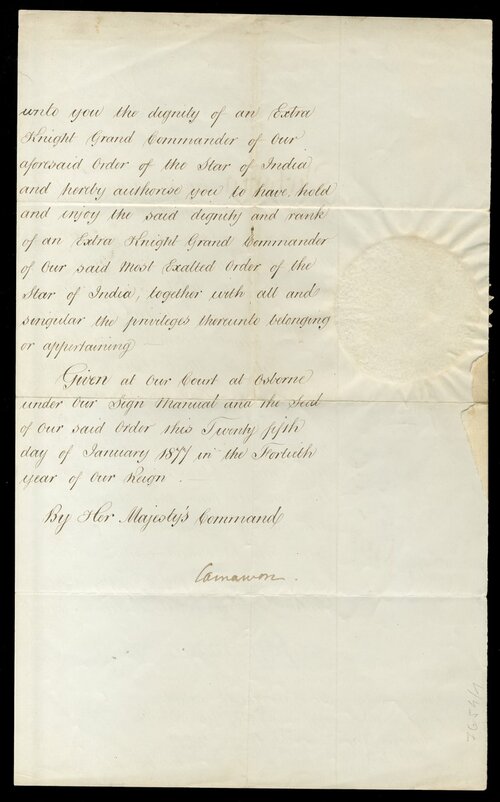 unto you the dignity of an Extra
Knight Grand Commander of Our
aforesaid Order of the Star of India
and hereby authorise you to have, hold
and enjoy the said dignity and rank
of an Extra Knight Grand Commander
of Our said Most Exalted Order of the
Star of India, together with all and
singular the privileges thereunto belonging
or appertaining
Given at Our Court at Osborne
under Our Sign Manual and the Seal
of Our said Order this Twenty fifth
day of January 1877 in the Fortieth
year of Our Reign.
By Her Majesty's Command
Carnarvon.